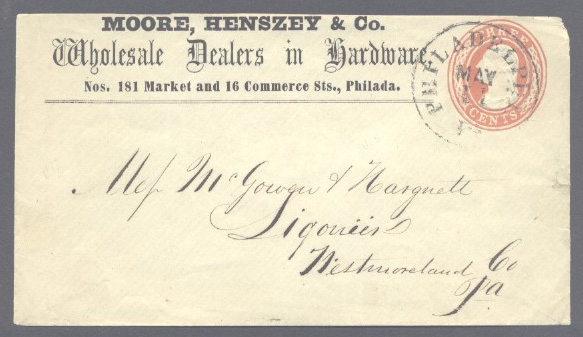 MOORE, HENSZEY & Co.
Wholesale Dealers in Hardware
Nos. 181 Market and 16 Commerce Sts., Philada.
THREE
CENTS
PHILADELPHI
MAY
Mess McGowen & Hargnett
Ligonier
Westmoreland Co
Pa